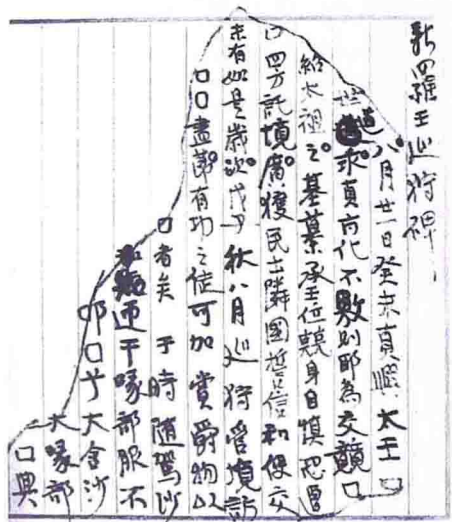 新羅王巡狩碑
八月廿一日癸未真興太王
世道乖真玄化不敷則耶為交競□
紹太祖之基纂承王位兢身自慎恐
□四方託境廣獲民土隣國誓信和使交
未有如是歲次戊子秋八月巡狩管境訪
□□盡節有功之徒可加賞爵物以
□者矣于時隨駕沙
迊干喙部服不
□兮大舍沙
大喙部
□興